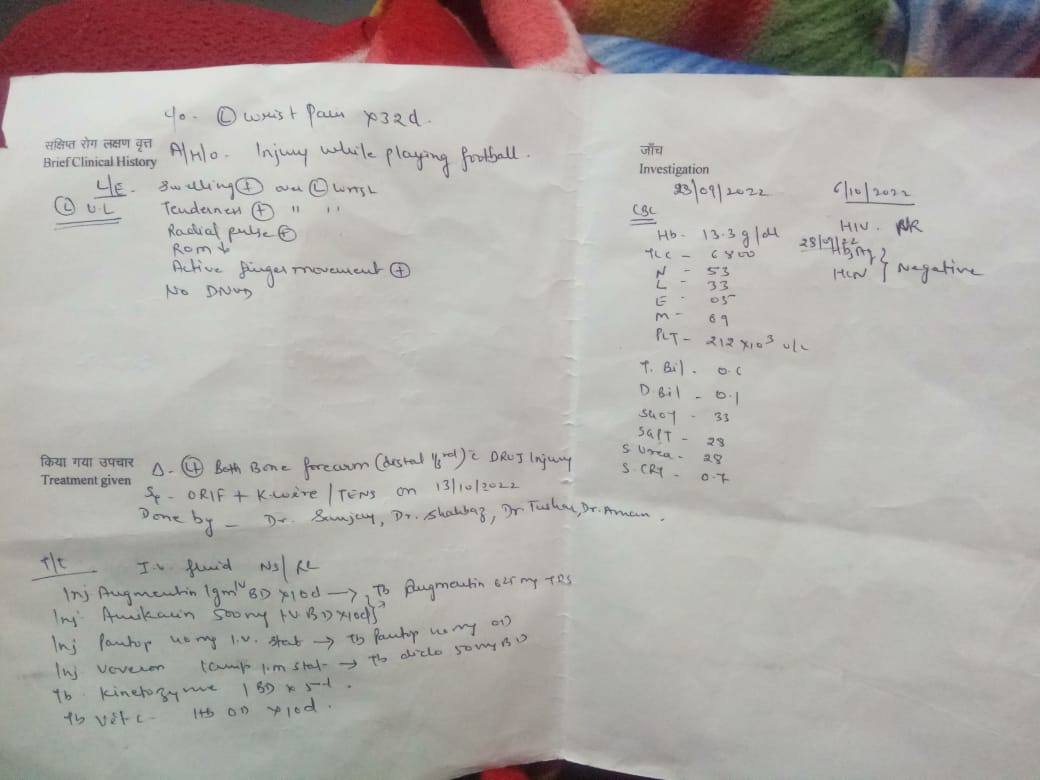 c/o. Ⓛ wrist Pain x32d.
संक्षिप्त रोग लक्षण वृत्त
Brief Clinical History
A/H/o. Injury while playing football.
L/E. Swelling ⊕ over Ⓛ wrist
Ⓛ U.L Tenderness ⊕ " "
Radial pulse ⊕
ROM ↓
Active finger movement ⊕
No DNVD
किया गया उपचार
Treatment given
Δ - Both Bone forearm (distal 1/3rd) c̄ DRUJ Injury
Sx - ORIF + K-wire / TENS on 13/10/2022
Done by - Dr. Sunjay, Dr. Shahbaz, Dr. Tushar, Dr. Aman.
T/t I.v. fluid NS/RL
Inj Augmentin 1gm IV BD x10d → Tb Augmentin 625 mg TDS
Inj Amikacin 500mg IV BD x10d
Inj Pantop 40mg I.V. stat → Tb Pantop 40mg OD
Inj Voveron 1amp I.m stat → Tb diclo 50mg BD
Tb. Kinetozyme 1 BD x 5d.
Tb Vit C - 1tb OD x10d.
जाँच
Investigation
23/09/2022
CBC
Hb - 13.3 g/dl
TLC - 6800
N - 53
L - 33
E - 05
M - 09
PLT - 212 x10³ u/L
T. Bil - 0.6
D Bil - 0.1
SGOT - 33
SGPT - 28
S Urea - 28
S. CRT - 0.7
6/10/2022
HIV. NR
28/9/22
HbsAg } Negative
HCV